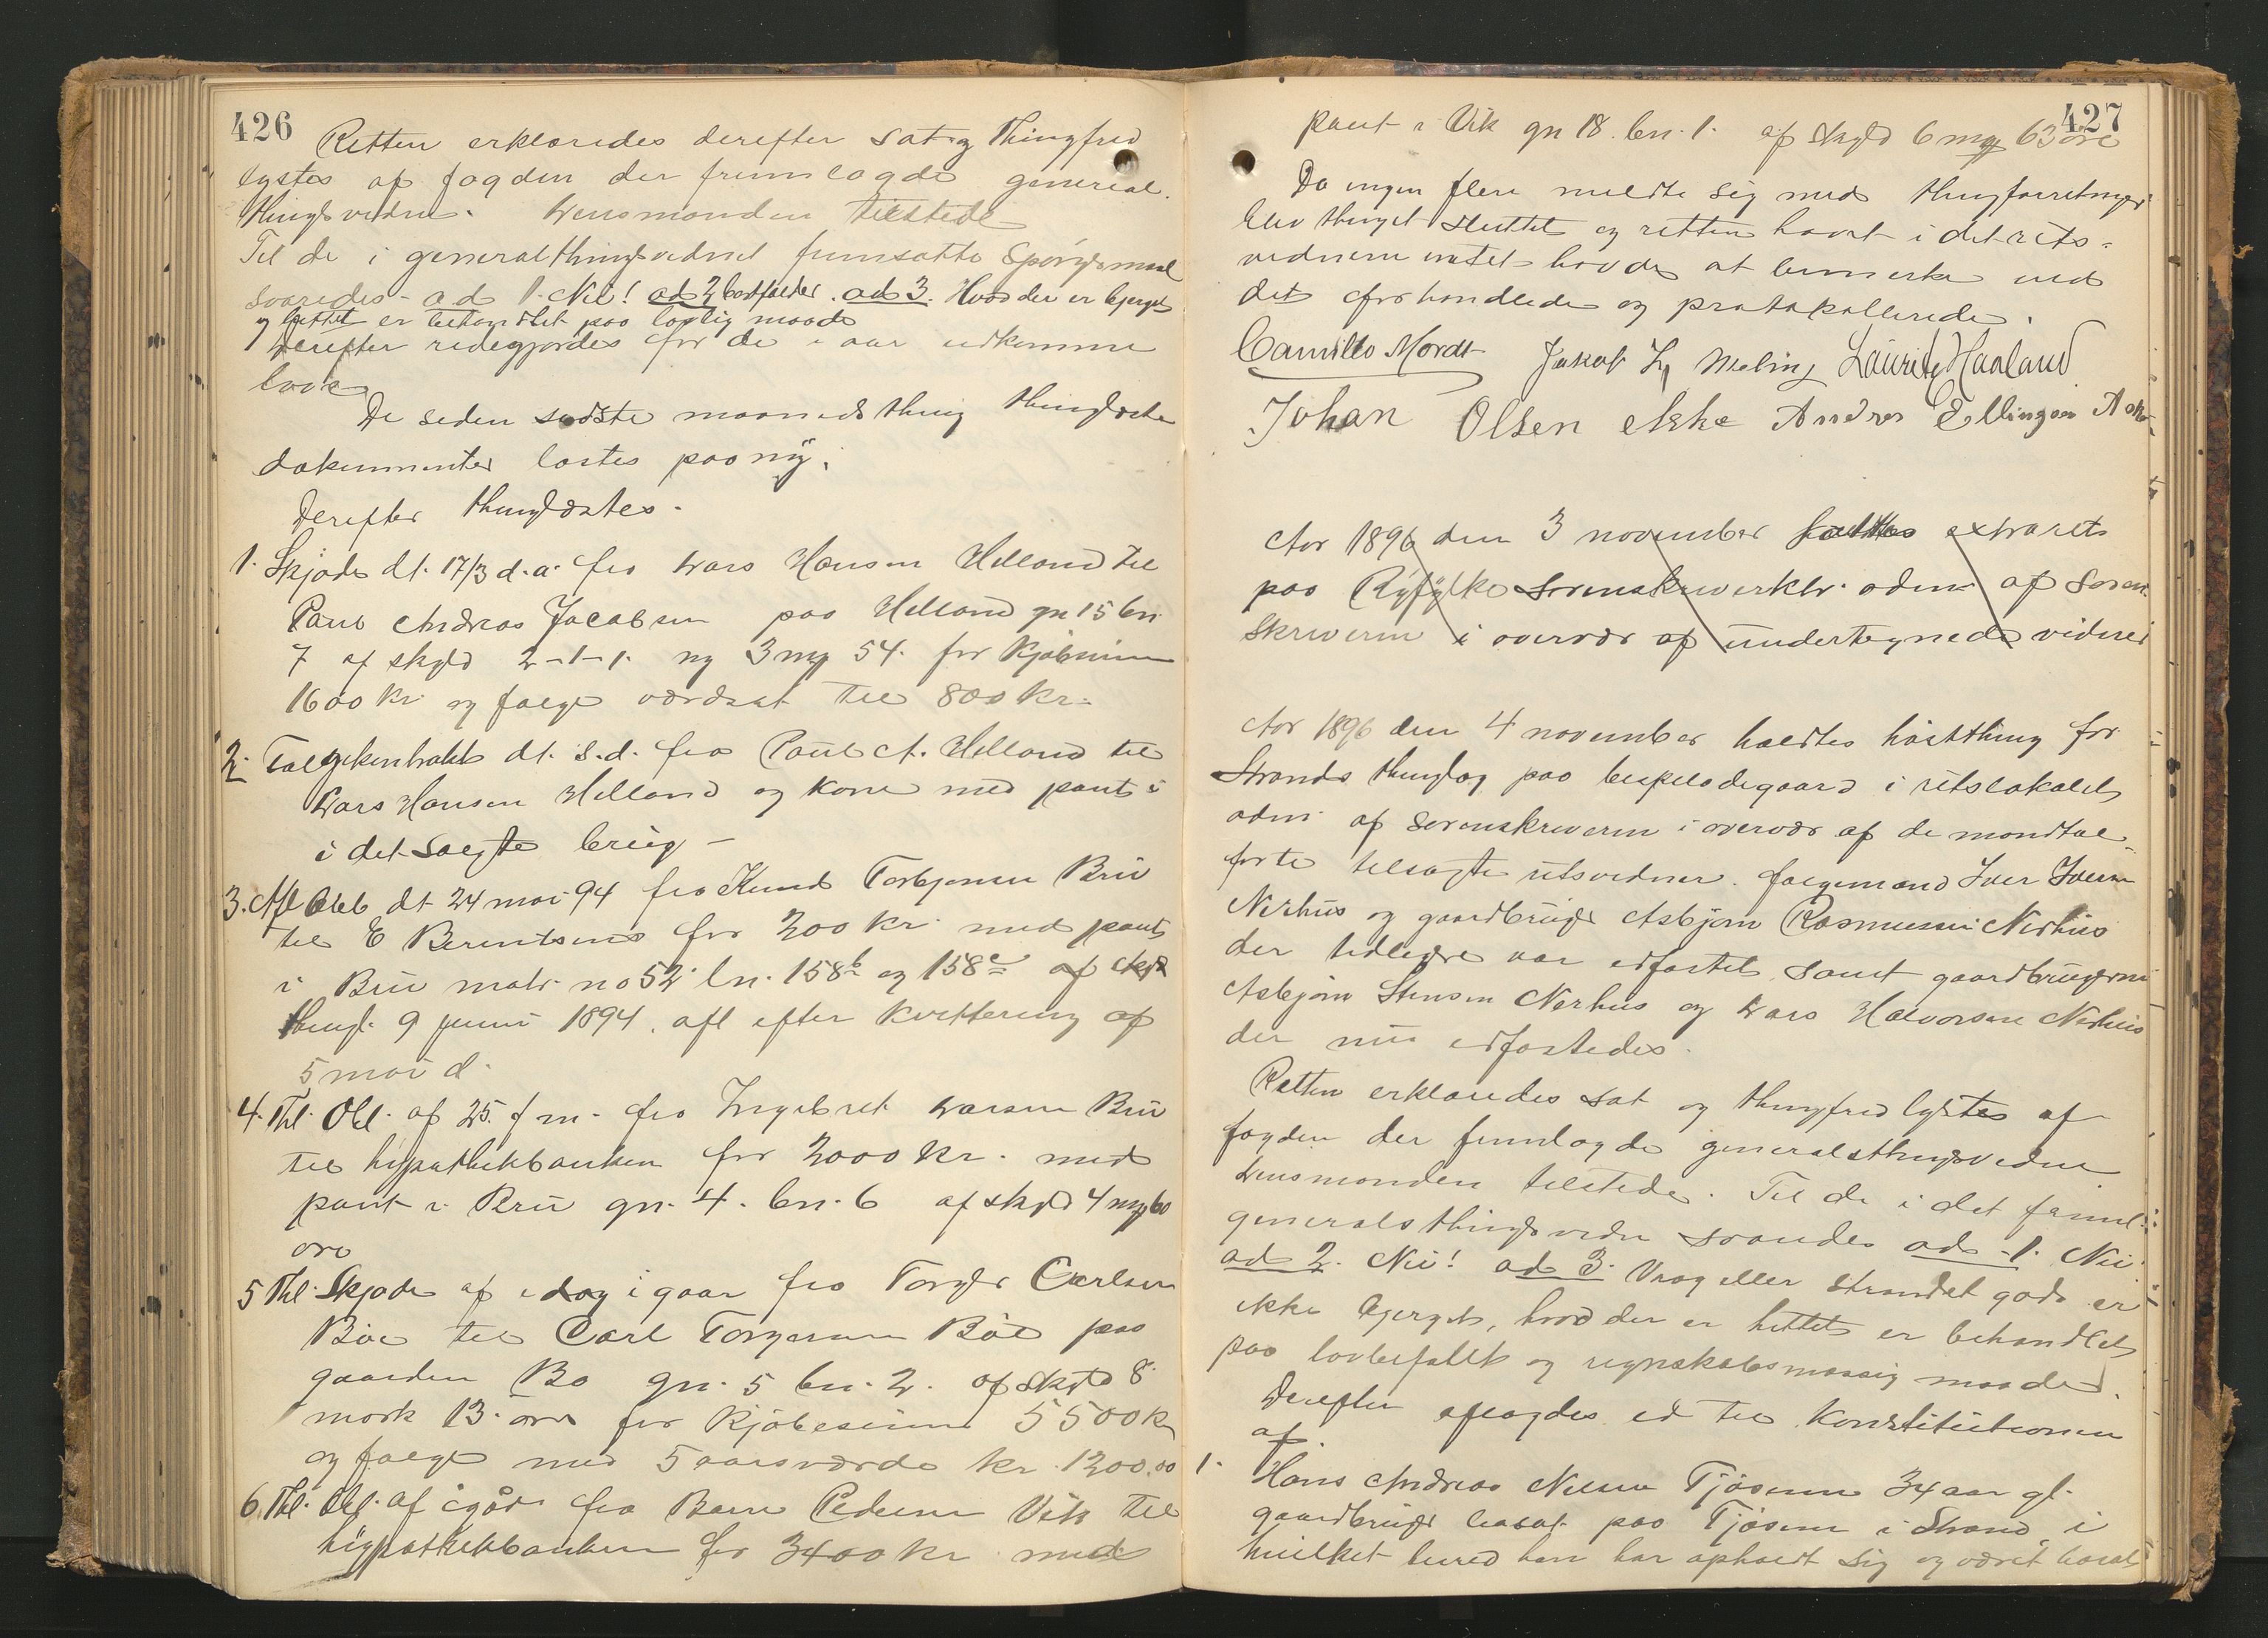 426
Retten erklæredes derefter sat og Thingfred
lystes af fogden der fremlagde general
thingsvidne. Lensmanden tilstede
Til de i generalthingsvidnet fremsatte Spörgsmaal
svaredes - ad 1. Nei! ad 2 bortfalder. ad 3. Hvad der er bjerget
og hittet er behandlet paa lovlig maade
Derefter redegjordes for de i aar udkomne
love
De siden sidste maanedsthing thinglæste
dokumenter læstes paa ny.
Derefter thinglæstes.
1. Skjøde dt. 17/3 d.a. fra Lars Hansen Helland til
Paul Andreas Jacobsen paa Helland gn 15 bn
7 af skyld 2-1-1. ny 3 my 54. for Kjøbesum
1600 kr og folge værdsat til 800 kr.
2. Folgekontrakt dt. s.d. fra Paul A. Helland til
Lars Hansen Helland og kone med pant i
i det solgte brug -
3. Afl Obl dt 24 mai 94 fra Knud Torbjørnsen Bru
til E Berentsens for 200 kr. med pant
i Bru matr. no 52 ln. 158b og 158c af skyld
thingl. 9 juni 1894. afl efter kvittering af
5 mai d.
4. Thl. Obl. af 25. f m. fra Ingebret Larsen Bru
til hypothekbanken for 2000 kr. med
pant i Bru gn. 4. bn. 6 af skyld 4 my 60
øre
5 Thl. Skjøde af idag igaar fra Torger Carlsen
Böe til Carl Torgersen Böe paa
gaarden Bø gn. 5 bn. 2. af skyld 8
mark 13 øre for Kjøbesum 5500 kr
og folge med 5 aarsværde kr. 1200.00
6. Thl. Obl. af igår fra Bærn Pedersen Vik til
hypothekbanken for 3400 kr med
427
pant i Vik gn 18. bn. 1. af skyld 6 my 63 øre
Da ingen flere meldte sig med thingforretninger
blev thinget sluttet og retten hævet idet rets-
vidnerne intet havde at bemerke ved
det forhandlede og protokollerede.
Camillo Mordt Jakob L. Meling Laurits Haaland
Johan Olsen Askø Andres Ellingsen Askø
Aar 1896 den 3 november holdtes extraret
paa Ryfylke Sorenskriverktr. adm. af Soren
skriveren i overvær af undertegnede vidner
Aar 1896 den 4 november holdtes höstthing for
Strands thinglag paa bispeladegaard i retslokalet
adm. af sorenskriveren i overvær af de mandtal-
førte tilsagte retsvidner. folgemand Iver Iversen
Nerhus og gaardbruger Asbjørn Rasmussen Nerhus
der tidligere var edfæstet samt gaardbrugerne
Asbjørn Stensen Nerhus og Lars Halvorsen Nerhus
der nu edfæstedes.
Retten erklæredes sat og thingfred lystes af
fogden der fremlagde generalsthingsvidne
Lensmanden tilstede. Til de i det freml.
generalsthingsvidne svaredes ad 1. Nei.
ad 2. Nei! ad 3. Vrag eller strandet gods er
ikke bjerget, hvad der er hittet er behandlet
paa lovbefalet og regnskabsmæssig maade.
Derefter aflagdes ed til Konstitutionen
af.
1. Hans Andreas Nilsen Tjøsem 34 aar gl.
gaardbruger bosat paa Tjøsem i Strand, i
hvilket hered han har opholdt sig og været bosat